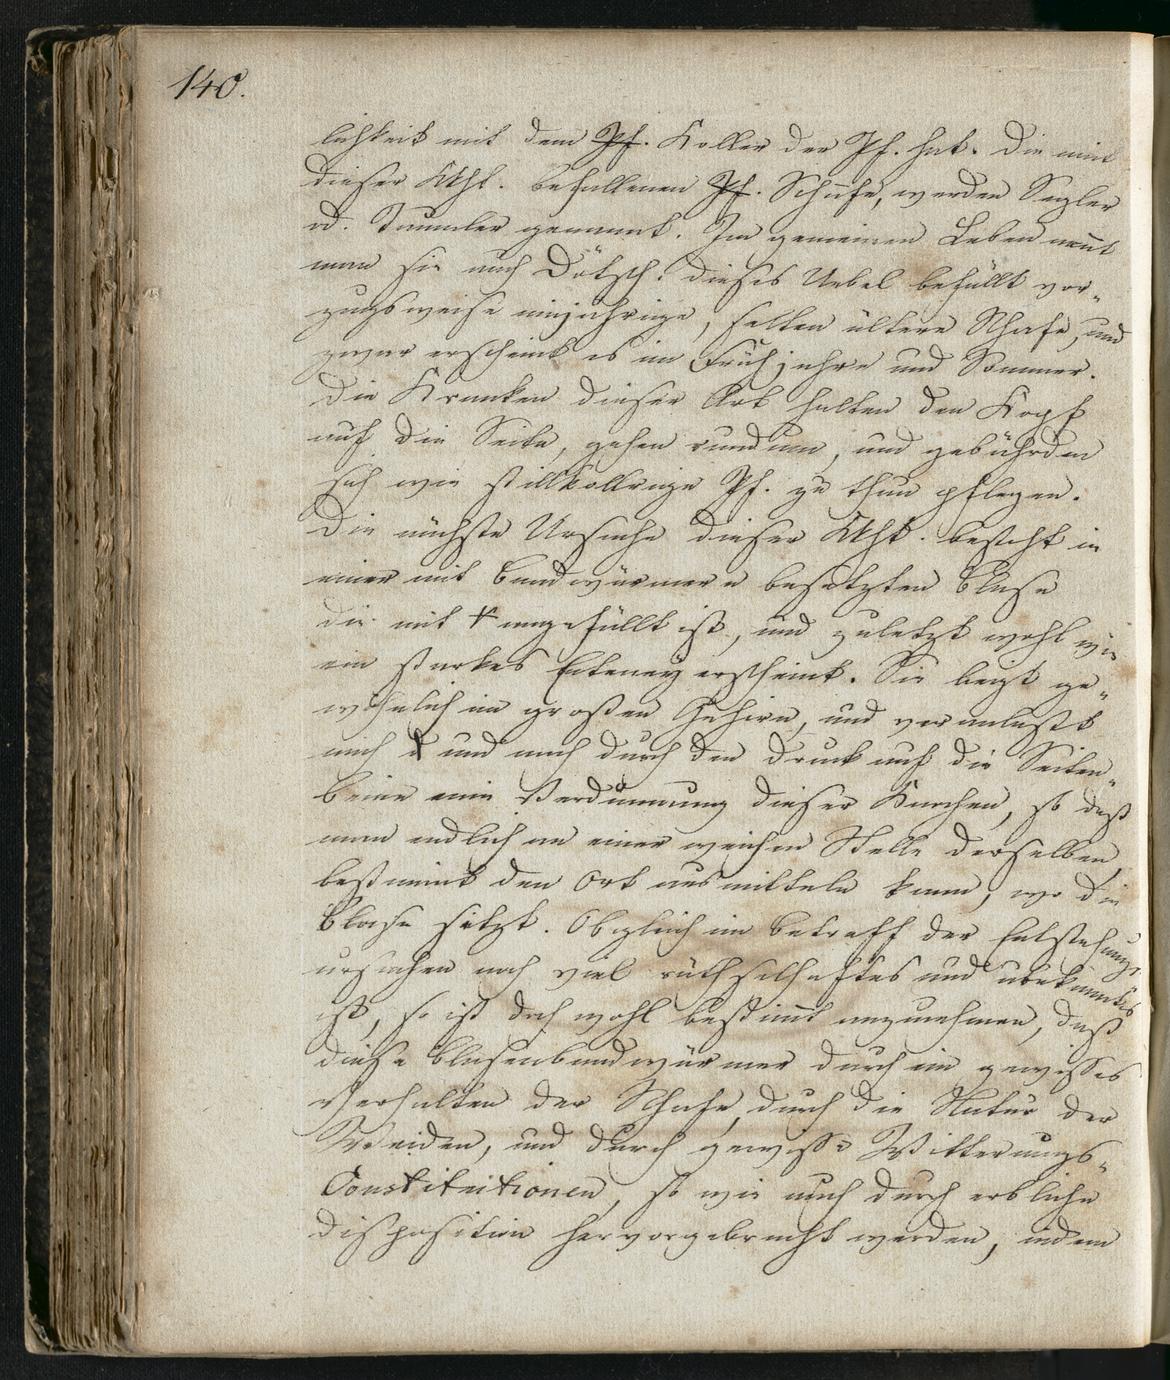 140.
lichkeit mit dem Pf. Koller der Pf. hat. Die mit
dieser Kkht. befallenen Pf. Schafe, werden Segler
od. Tummler genannt. Im gemeinen Leben nennt
man sie auch Dötsch. dieses Uebel befällt vor-
zugsweise einjährige, selten ältere Schafe, und
zwar erscheint es im Frühjahre und Sommer.
Die Kranken dieser Art halten den Kopf
auf die Seite, gehen rundum, und gebährden
sich wie stillkollrige Pf. zu thun pflegen.
Die nächste Ursache dieser Kkht. besteht in
einer mit Bandwürmern besetzten Blase
die mit angefüllt ist, und zuletzt wohl wie
ein starkes Entenei erscheint. Sie liegt ge-
wöhnlich im großen Gehirn, und veranlaßt
auch und nach durch den Druck auf die Seiten-
beine eine Verdünnung dieser Knochen, so daß
man endlich an einer weichen Stelle derselben
bestimmt den Ort ausmitteln kann, wo die
Blase sitzt. Obgleich im Betreff der Entstehungs-
ursachen noch viel räthselhaftes und unbekanntes
ist, so ist doch wohl bestimmt anzunehmen, daß
diese Blasenbandwürmer durch ein gewisses
Verhalten der Schafe, durch die Natur der
Weiden, und durch gewisse Witterungs-
Constitutionen, so wie auch durch erbliche
Disposition hervorgebracht werden, indem